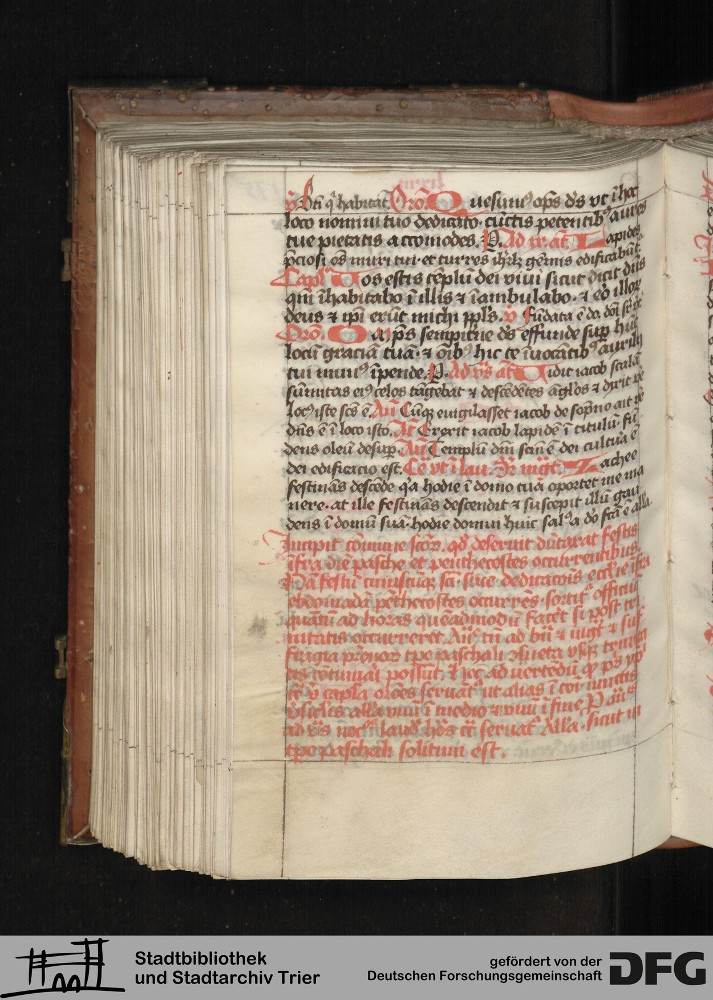 Bti q̇ habitāt Oro Quesumꝰ ops ds vt ī hoc
loco nomini tuo dedicato. cūctis petentibꝰ aures
tue pietatis accomodes. P. Ad xr. an̄. Lapides
p̄ciosi oēs muri tui. et turres ihrlz gēmis edificabūt.
Capl̄ Vos estis tēplū dei vivi sicut dicit dn̄s
qm̄ īhabitabo ī illis ⁊ īambulabo. ⁊ eo illoꝝ
deus ⁊ ip̄i erūt michi ppl̄s. Fūdata ē do
Oro. Oīp̄s sempit̄ne ds effunde sup̄ hūc
locū graciā tuā. ⁊ oībꝰ hic te īuocātibꝰ auxilij
tui munꝰ īpende. P. Ad vs an̄ Vidit iacob scalā
sūmitas eiꝰ celos tāgebat ⁊ descēdētes āglos ⁊ dixit vere
locꝰ iste scs̄ ē. An̄ Cūqꝫ euigilasset iacob de sopno ait
dn̄s ē ī loco isto. An̄ Erexit iacob lapidē ī titulū. fū
dens oleū desup̄. An̄ Templū dn̄i scm̄ ē dei cultura ē
dei edificacio est. Cet̄ vt ī lau. Ad mgt. Zachee
festinās descēde q̄a hodie ī domo tua oportet me ma
nere. at ille festinās descendit ⁊ suscepit illū gau
dens ī domū suā. hodie domui huic salꝰ a dō fc̄ā ē alla.
Incipit cōmune scōꝝ. qd̄ deseruit dūtaxat festis
īfra die pasche et penthecostes occurrentibus.
Nā festū cuiuscūqꝫ sc̄i siue dedicacōis eccl̄ie īfra
ebdomadā pēthecostes occurrēs. sortit᷑ officiū
quātū ad horas queadmodū facēt si post tri
nitatis occurreret. Añs tn̄ ad bn̄ ⁊ mgt ⁊ suf
fragia p̄t̄ tp̄e paschali ꝯsueta vsqꝫ trinita
tis cōtinuari possūt. ⁊ hec aduertēdū qꝫ ps
capl̄a oēs seruāt᷑ ut alias ī
alla vnū ī medio ⁊ vnū ī fine
ad vs noct laud̄ seruat᷑ Alla. sicut in
tp̄e paschali solitum est.
Stadtbibliothek
und Stadtarchiv Trier
gefördert von der
Deutschen Forschungsgemeinschaft
DFG